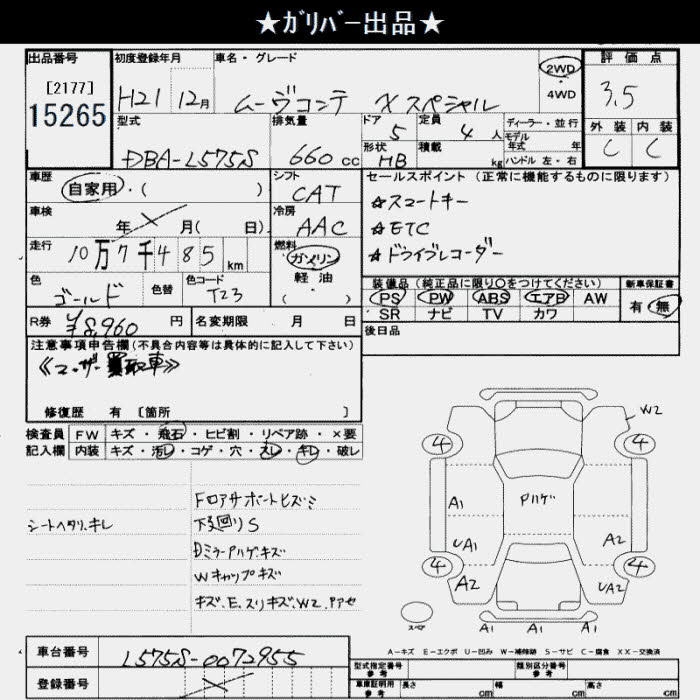 ★ガリバー出品★
出品番号 初度登録年月 車名・グレード 評価点
[2177]
15265
H21 12月 ムーヴコンテ Xスペシャル 2WD 4WD 3.5
型式 排気量 ドア 定員 ディーラー・並行 外装 内装
DBA-L575S 660cc 5 4人 モデル年式 年 C C
形状 積載 ハンドル 左・右
HB kg
車歴 シフト セールスポイント(正常に機能するものに限ります)
自家用・( ) CAT ☆スマートキー
車検 冷房 ☆ETC
年 月( 日) AAC ☆ドライブレコーダー
走行 燃料
10万7千485km ガソリン
軽油
( )
色 色替 色コード 装備品(純正品に限り○をつけてください) 新車保証書
ゴールド T23 PS PW ABS エアB AW 有・無
SR ナビ TV カワ
R券 ¥8,960円 名変期限 月 日 後日品
注意事項申告欄(不具合内容等は具体的に記入して下さい)
《ユーザー買取車》
修復歴 有 [箇所 ]
検査員 FW キズ・飛石・ヒビ割・リペア跡・×要
記入欄 内装 キズ・汚レ・コゲ・穴・スレ・キレ・破レ
Fロアサポートヒズミ
シートヘタリ、キレ 下廻りS
DミラーPハゲキズ
Wキャップキズ
キズ、E、スリキズ、W2、Pアセ
W2
4 4
Pハゲ
A1
UA1 A2
4 4
A2 UA2
スペア A1 A1 A1
A-キズ E-エクボ U-凹み W-補修跡 S-サビ C-腐食 XX-交換済
車台番号 L575S-0072955
登録番号
型式指定番号 参考 類別区分番号 参考
車庫証明用 参考 長さ cm 幅 cm 高さ cm